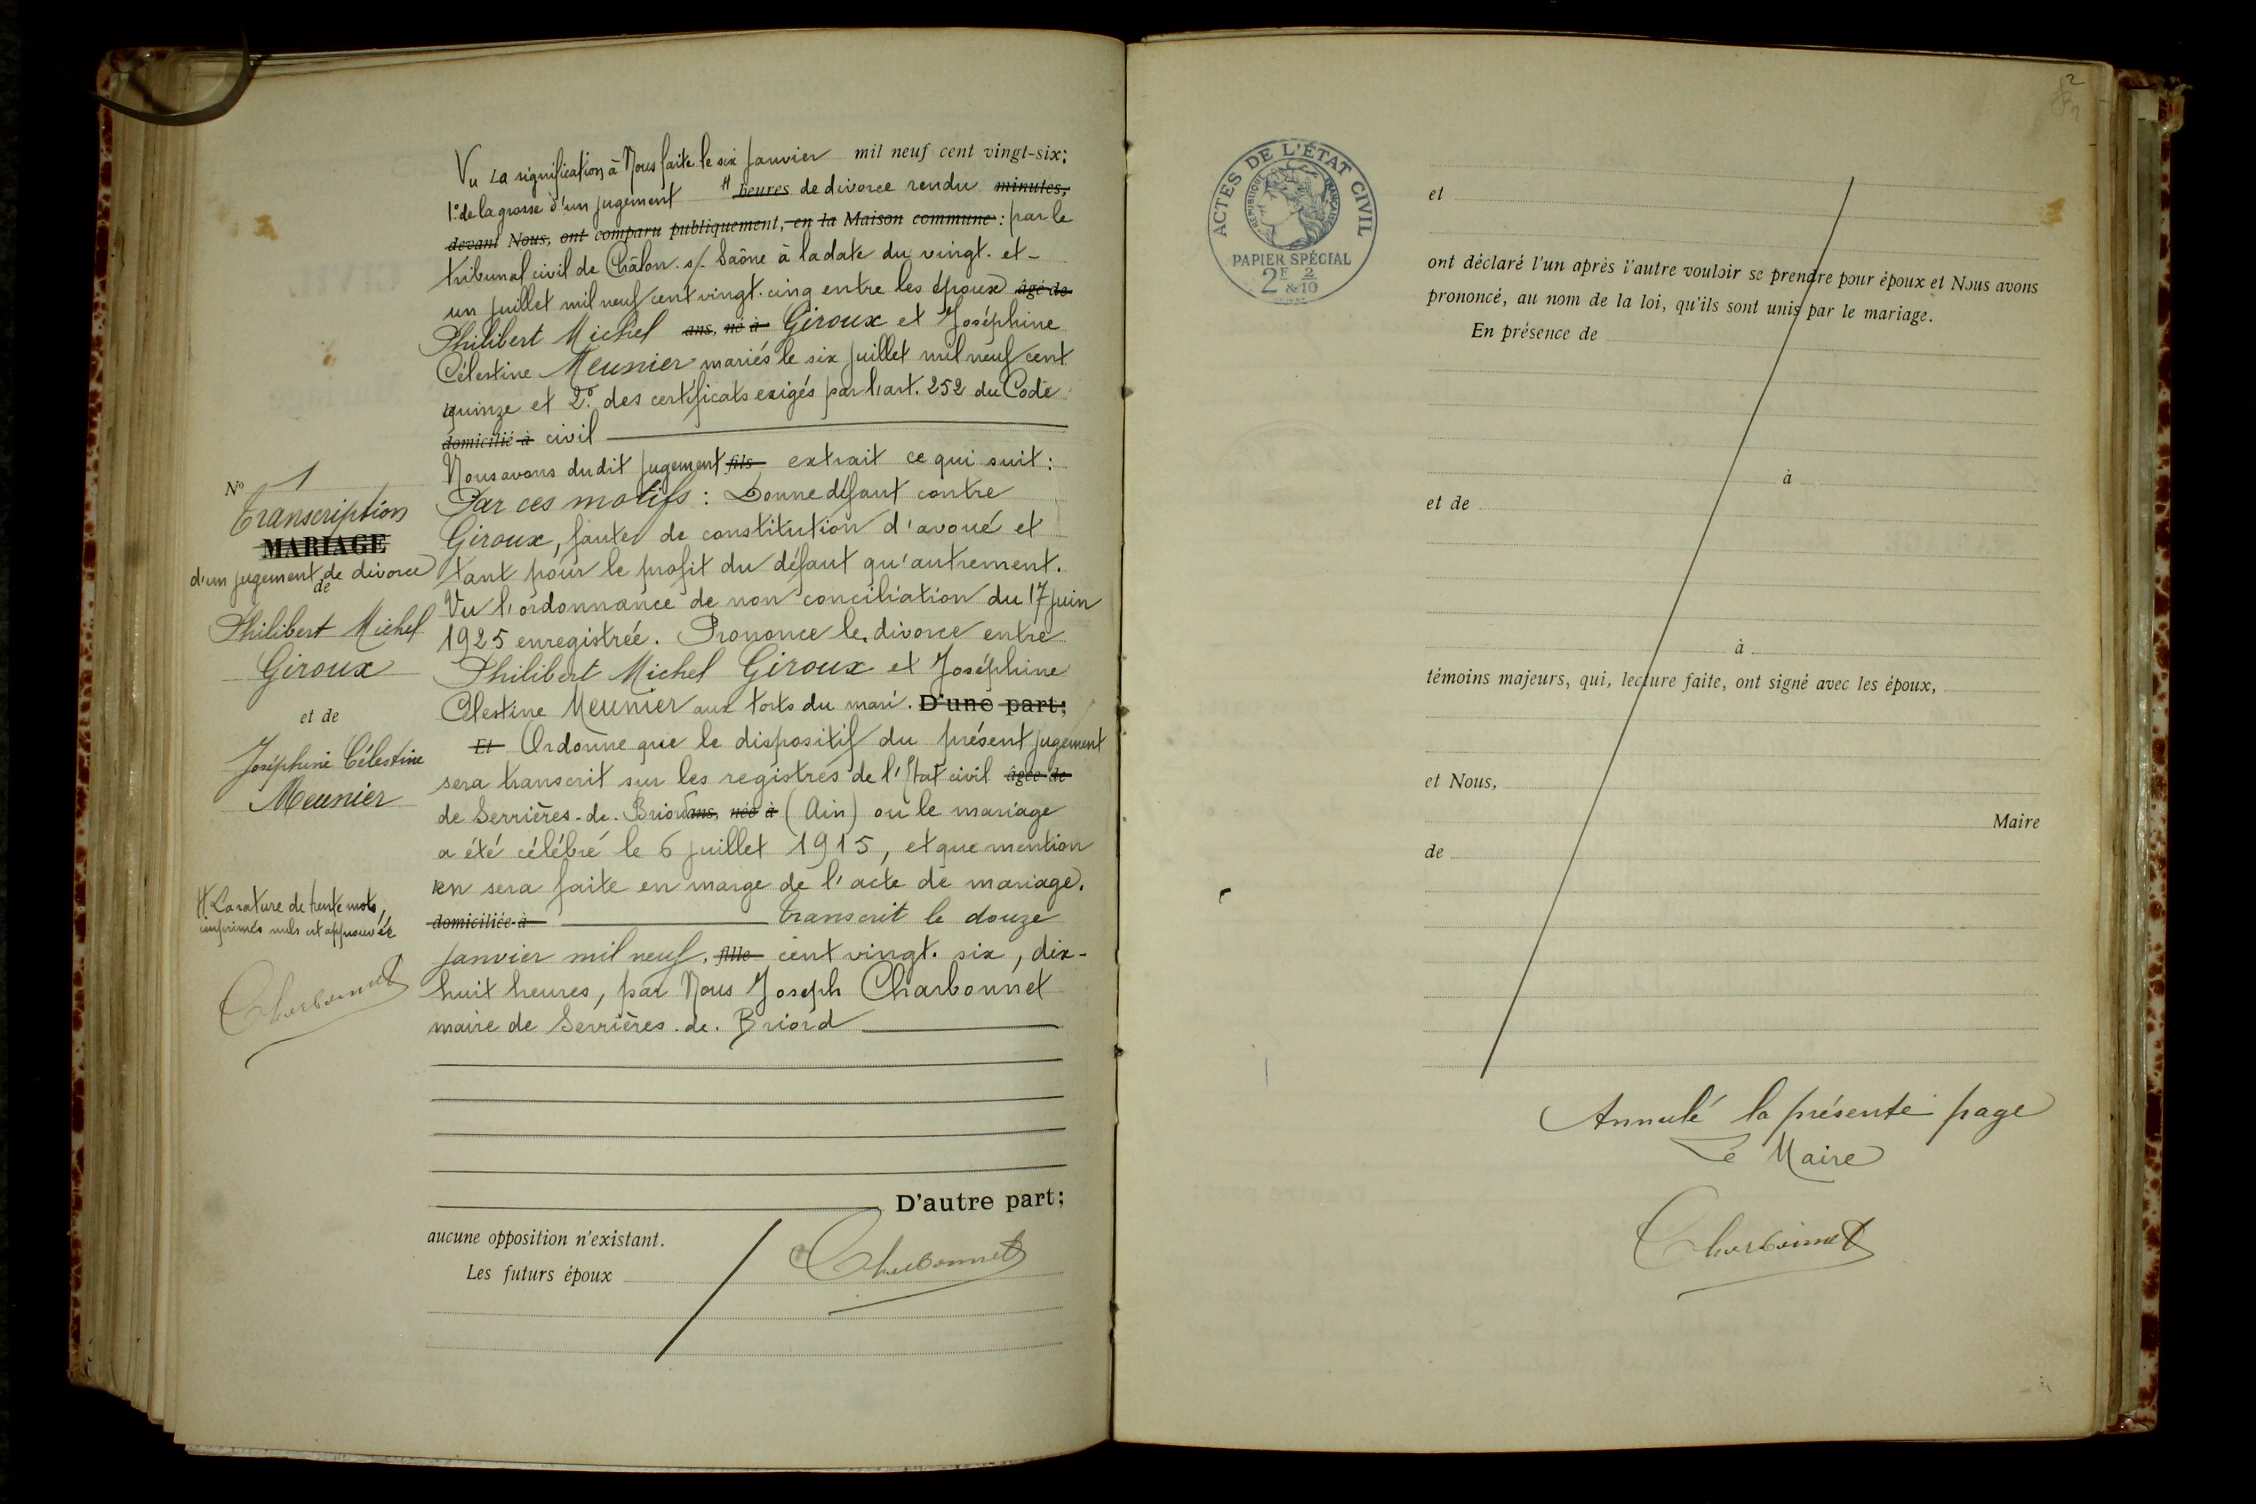 Vu la signification à Nous faite le six Janvier mil neuf cent vingt-six;
1° de la grosse d'un jugement # heures de divorce rendu minutes,
devant Nous, ont comparu publiquement, en la Maison commune: par le
tribunal civil de Châlon s/ Saône à la date du vingt-et-
un juillet mil neuf cent vingt-cinq entre les époux âgé de
Philibert Michel ans, né à Giroux et Joséphine
Célestine Meunier mariés le six juillet mil neuf cent
quinze et 2° des certificats exigés par l'art. 252 du Code
domicilié à civil
Nous avons dudit jugement fils extrait ce qui suit:
Par ces motifs: Donne défaut contre
Giroux, faute de constitution d'avoué et
tant pour le profit du défaut qu'autrement.
Vu l'ordonnance de non conciliation du 17 juin
1925 enregistrée. Prononce le divorce entre
Philibert Michel Giroux et Joséphine
Célestine Meunier aux torts du mari. D'une part;
Et Ordonne que le dispositif du présent jugement
sera transcrit sur les registres de l'Etat civil âgée de
de Serrières-de-Briord ans, née à (Ain) où le mariage
a été célébré le 6 juillet 1915, et que mention
en sera faite en marge de l'acte de mariage.
domiciliée à Transcrit le douze
janvier mil neuf fille cent vingt-six, dix-
huit heures, par Nous Joseph Charbonnet
maire de Serrières-de-Briord
D'autre part;
aucune opposition n'existant.
Les futurs époux
Charbonnet
N° 1
Transcription
MARIAGE
d'un jugement de divorce
de
Philibert Michel
Giroux
et de
Joséphine Célestine
Meunier
# La rature de trente mots
imprimés nuls est approuvée
Charbonnet
2
ACTES DE L'ÉTAT CIVIL
RÉPUBLIQUE FRANÇAISE
PAPIER SPÉCIAL
2F & 2/10
et
ont déclaré l'un après l'autre vouloir se prendre pour époux et Nous avons
prononcé, au nom de la loi, qu'ils sont unis par le mariage.
En présence de
à
et de
à
témoins majeurs, qui, lecture faite, ont signé avec les époux,
et Nous,
Maire
de
Annulé la présente page
Le Maire
Charbonnet